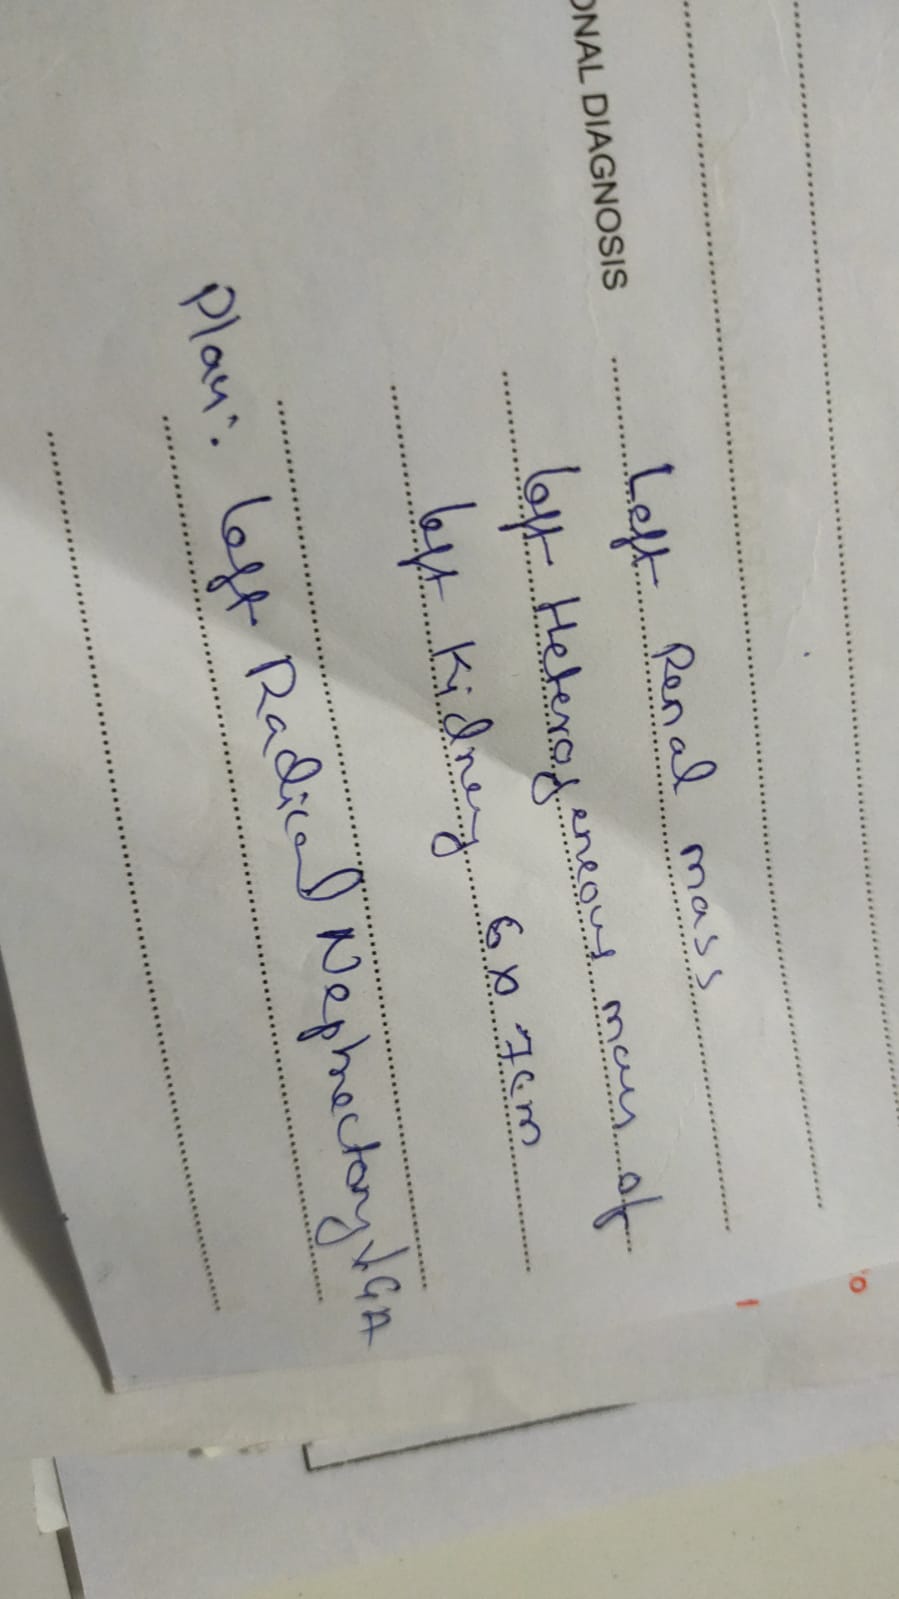 ONAL DIAGNOSIS Left Renal mass
left Heterogeneous mass of
left Kidney 6 x 7cm
Plan: left Radical Nephrectomy ↓GA